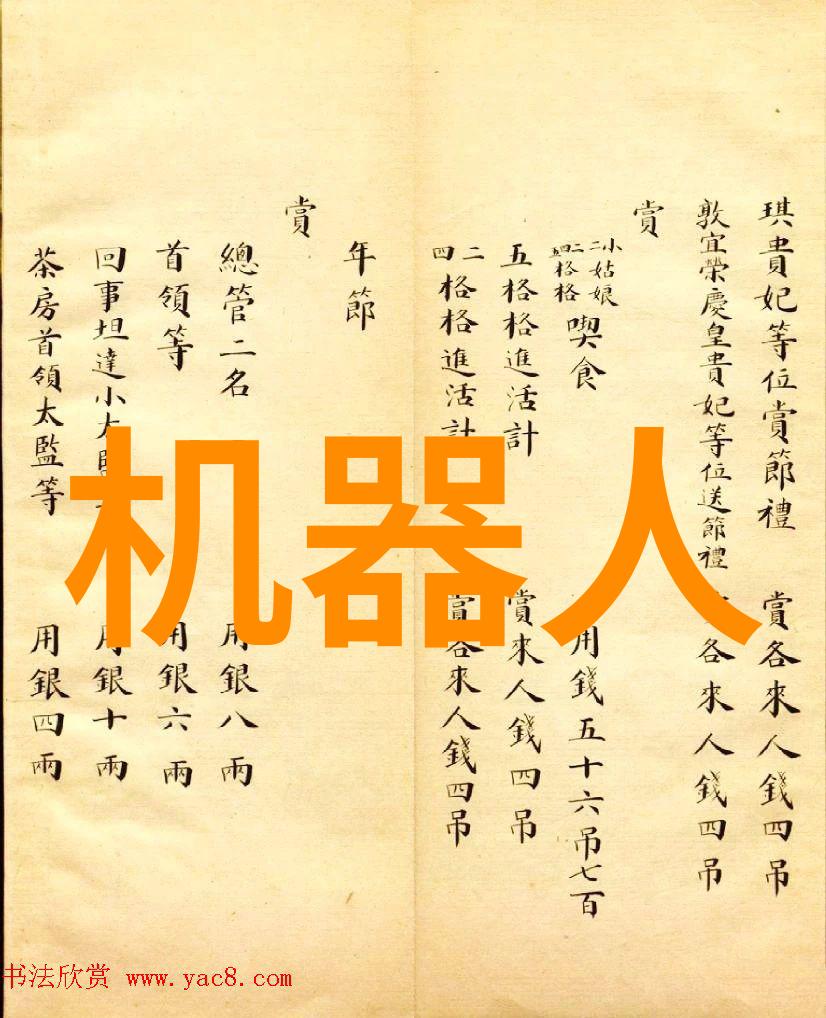 琪貴妃等位賞節禮 賞各來人錢四吊
敦宜榮慶皇貴妃等位送節禮 各來人錢四吊
賞
小姑娘 格格 喫食 用錢五十六吊七百
五格格進活計 賞來人錢四吊
二四格格進活計 賞各來人錢四吊
年節
賞
總管二名 用銀八兩
首領等 用銀六兩
回事坦達小太監 用銀十兩
茶房首領太監等 用銀四兩
机器人
书法欣赏 www.yac8.com